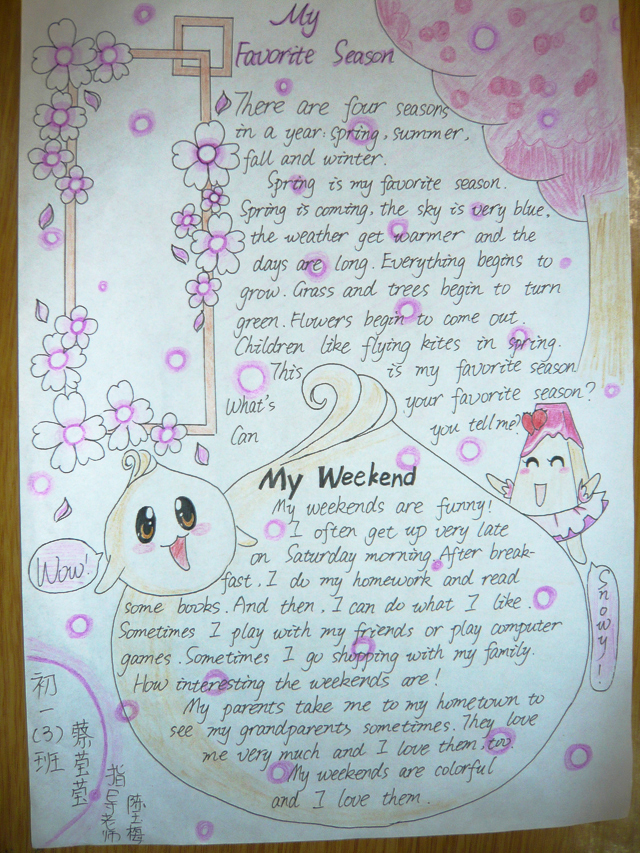 My
Favorite Season
There are four seasons
in a year: spring, summer,
fall and winter.
Spring is my favorite season.
Spring is coming, the sky is very blue.
the weather get warmer and the
days are long. Everything begins to
grow. Grass and trees begin to turn
green. Flowers begin to come out.
Children like flying kites in spring.
This is my favorite season
What's your favorite season?
Can you tell me?
My Weekend
My weekends are funny!
I often get up very late
on Saturday morning. After break-
fast, I do my homework and read
some books. And then, I can do what I like.
Sometimes I play with my friends or play computer
games. Sometimes I go shopping with my family.
How interesting the weekends are!
My parents take me to my hometown to
see my grandparents sometimes. They love
me very much and I love them, too.
My weekends are colorful
and I love them.
Wow!
Snowy~
初一(3)班
蔡莹莹
指导老师
陈玉梅